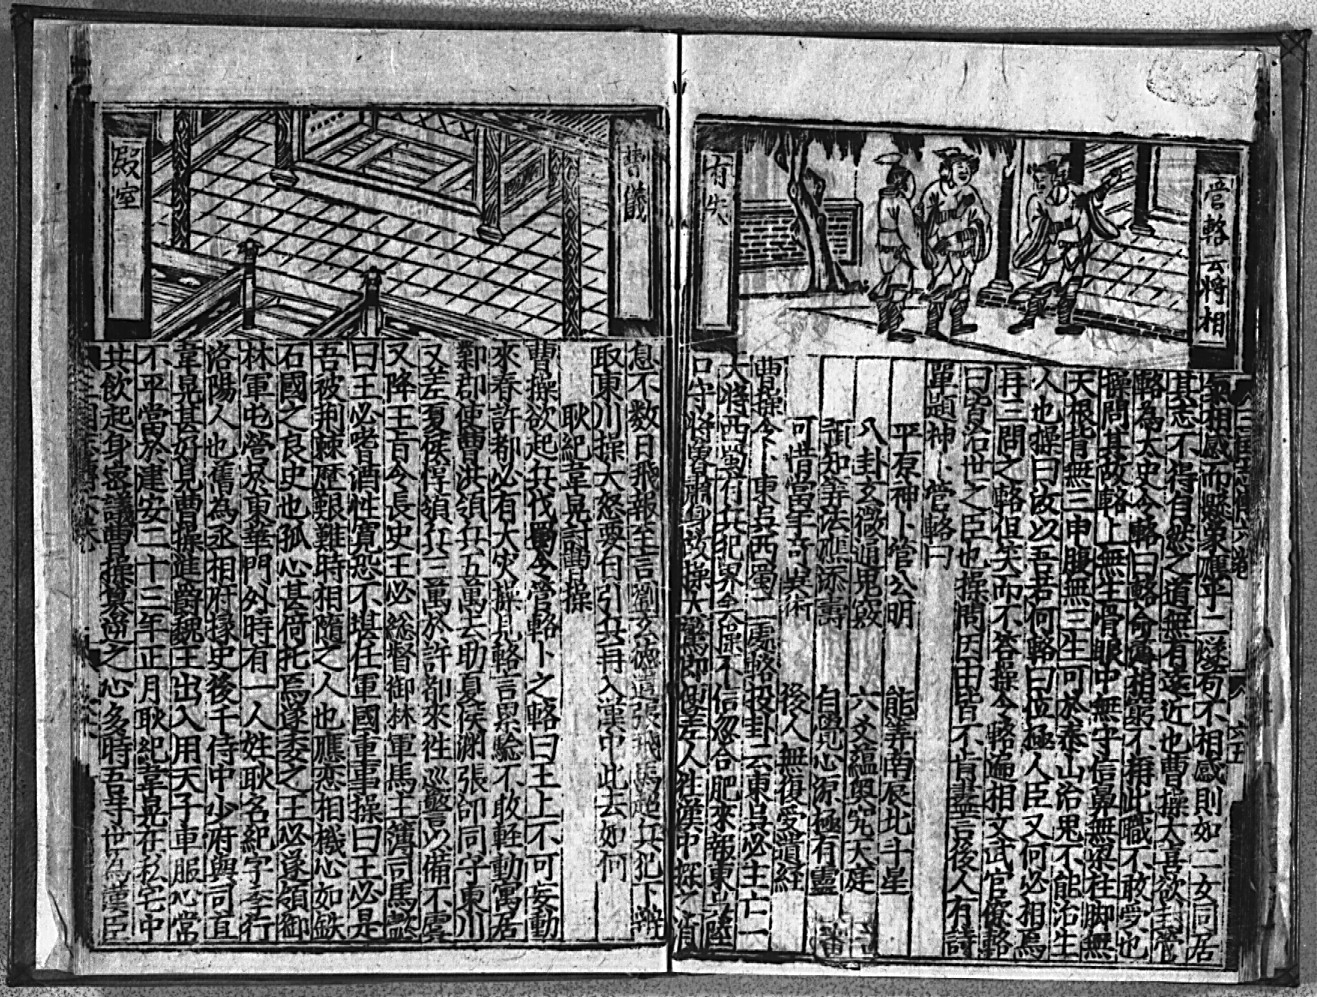 管輅云將相
有失
氣相感而懸象應乎二燧苟不相感則如二女同居
其志不得自然之道無有遠近也曹操大喜欲封管
輅為太史令輅曰輅命薄相窮不稱此職不敢受也
操問其故輅上無主骨眼中無守信鼻無梁柱脚無
天根背無三甲腹無三壬可於泰山治鬼不能治生
人也操曰汝以吾若何輅曰位極人臣又何必相焉
再三問之輅但笑而不答操令輅遍相文武官僚輅
曰皆治世之臣也操問因由皆不肯盡言後人有詩
單題神卜管輅曰
平原神卜管公明 能筭南辰北斗星
八卦玄微通鬼竅 六爻蘊奧究天庭
預知筭法應添壽 自覺心源極有靈
可惜當年奇異術 後人無復受遺經
曹操令卜東吳西蜀二處輅投卦云東吳必主亡一
大將西蜀有兵犯界矣操不信忽合肥來報東吳陸
口守將魯肅身故操大驚即便差人往漢中探
曹儀
殿室
息不數日飛報至言劉玄德遣張飛馬超兵犯下辨
取東川操大怒要自引兵再入漢中此去如何
耿紀韋晃討曹操
曹操欲起兵伐蜀令管輅卜之輅曰王上不可妄動
來春許都必有大災操見輅言累驗不敢輕動寓居
鄴郡使曹洪領兵五萬去助夏侯淵張郃同守東川
又差夏侯惇領兵三萬於許都來往巡警以備不虞
又降王旨令長史王必総督御林軍馬王簿司馬懿
曰王必嗜酒性寬恐不堪任軍國重事操曰王必是
吾被荆棘歷艱難時相隨之人也應恋相機心如鉄
石國之良史也孤心甚倚托焉遂委之王必遂領御
林軍屯營於東華門外時有一人姓耿名紀字季行
洛陽人也舊為丞相府掾史後千侍中少府與司直
韋晃甚好見曹操進爵魏王出入用天子車服心常
不平當於建安三十三年正月耿紀韋晃在私宅中
共飲起身密議曹操篡逆之心多時吾等世為漢臣